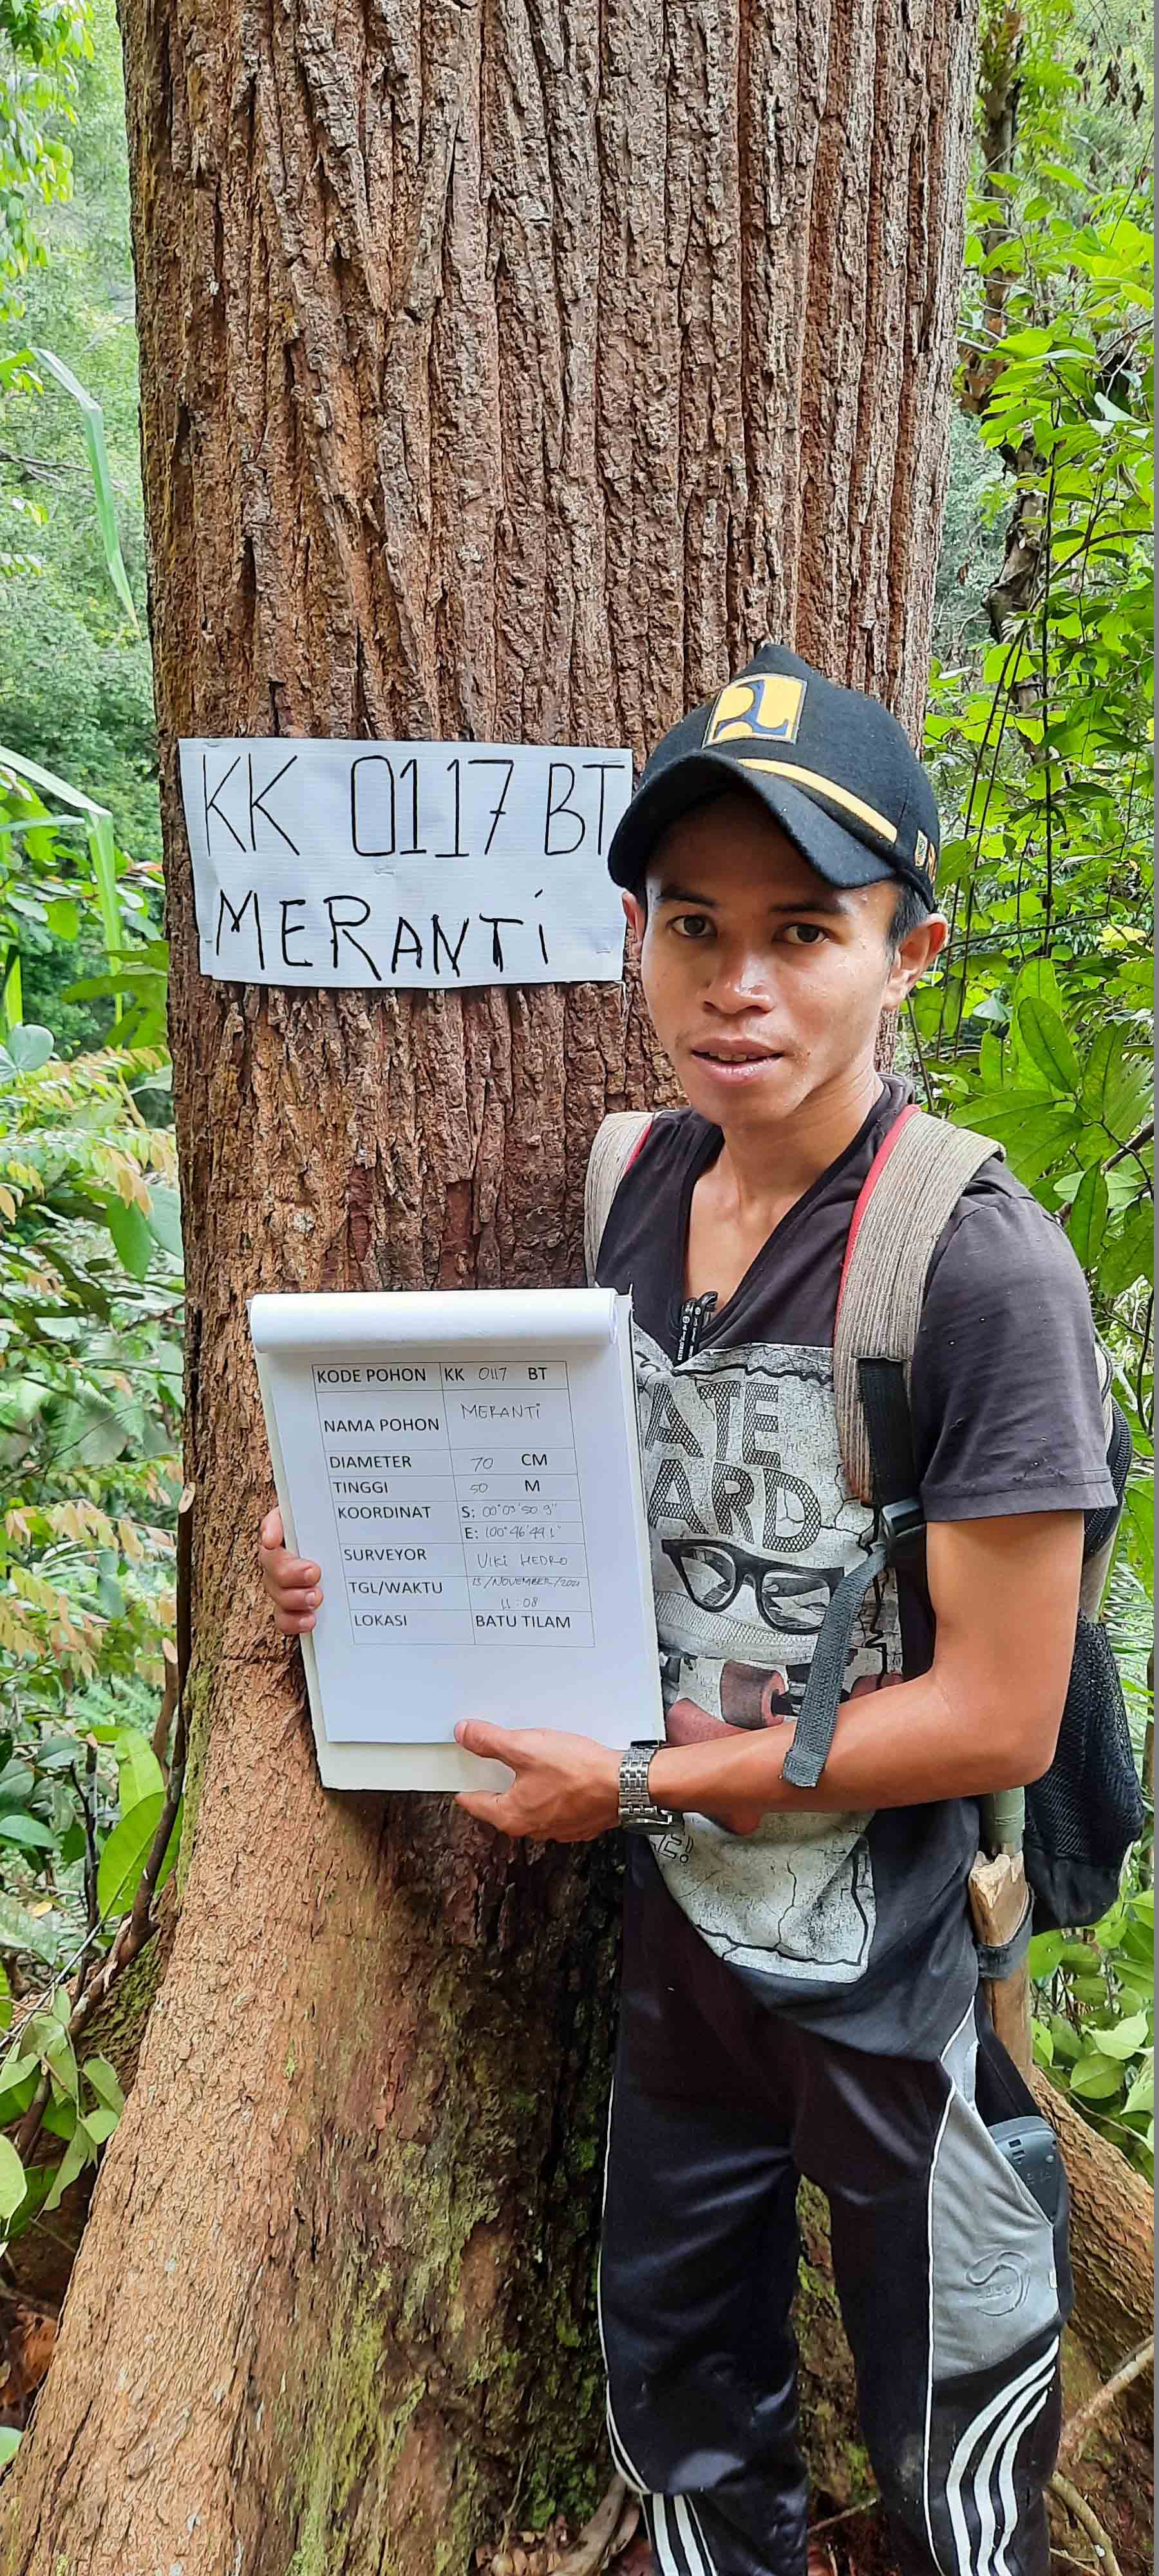 KK 0117 BT
MERANTI
KODE POHON KK 0117 BT
NAMA POHON MERANTI
DIAMETER 70 CM
TINGGI 50 M
KOORDINAT S: 00°09'50 9"
E: 100°46'44 1"
SURVEYOR VIKI HEDRO
TGL/WAKTU 13/NOVEMBER/2021
11:08
LOKASI BATU TILAM
ATE
ARD